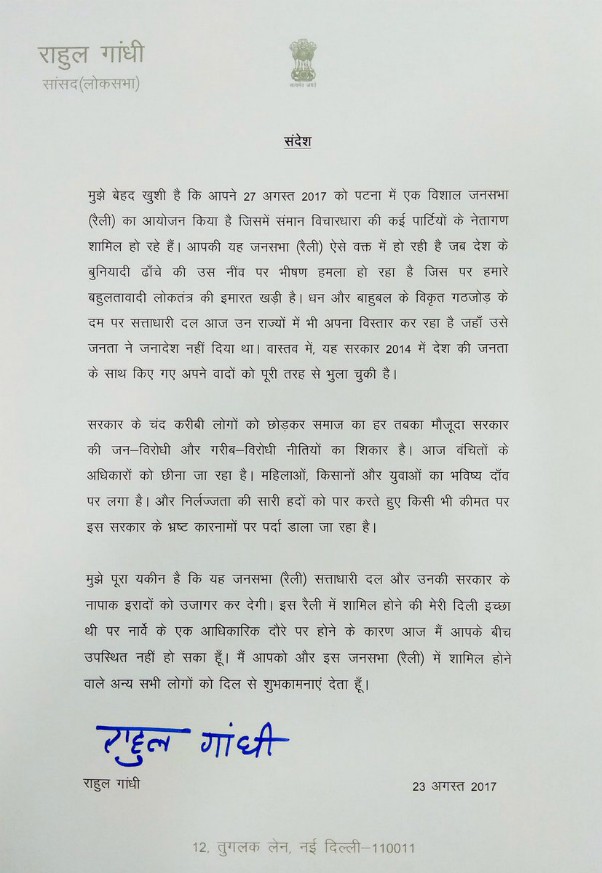 राहुल गांधी
सांसद(लोकसभा)
संदेश
मुझे बेहद खुशी है कि आपने 27 अगस्त 2017 को पटना में एक विशाल जनसभा
(रैली) का आयोजन किया है जिसमें समान विचारधारा की कई पार्टियों के नेतागण
शामिल हो रहे हैं। आपकी यह जनसभा (रैली) ऐसे वक्त में हो रही है जब देश के
बुनियादी ढाँचे की उस नींव पर भीषण हमला हो रहा है जिस पर हमारे
बहुलतावादी लोकतंत्र की इमारत खड़ी है। धन और बाहुबल के विकृत गठजोड़ के
दम पर सत्ताधारी दल आज उन राज्यों में भी अपना विस्तार कर रहा है जहाँ उसे
जनता ने जनादेश नहीं दिया था। वास्तव में, यह सरकार 2014 में देश की जनता
के साथ किए गए अपने वादों को पूरी तरह से भुला चुकी है।
सरकार के चंद करीबी लोगों को छोड़कर समाज का हर तबका मौजूदा सरकार
की जन–विरोधी और गरीब–विरोधी नीतियों का शिकार है। आज वंचितों के
अधिकारों को छीना जा रहा है। महिलाओं, किसानों और युवाओं का भविष्य दाँव
पर लगा है। और निर्लज्जता की सारी हदों को पार करते हुए किसी भी कीमत पर
इस सरकार के भ्रष्ट कारनामों पर पर्दा डाला जा रहा है।
मुझे पूरा यकीन है कि यह जनसभा (रैली) सत्ताधारी दल और उनकी सरकार के
नापाक इरादों को उजागर कर देगी। इस रैली में शामिल होने की मेरी दिली इच्छा
थी पर नार्वे के एक आधिकारिक दौरे पर होने के कारण आज मैं आपके बीच
उपस्थित नहीं हो सका हूँ। मैं आपको और इस जनसभा (रैली) में शामिल होने
वाले अन्य सभी लोगों को दिल से शुभकामनाएं देता हूँ।
राहुल गांधी
राहुल गांधी 23 अगस्त 2017
12, तुगलक लेन, नई दिल्ली–110011